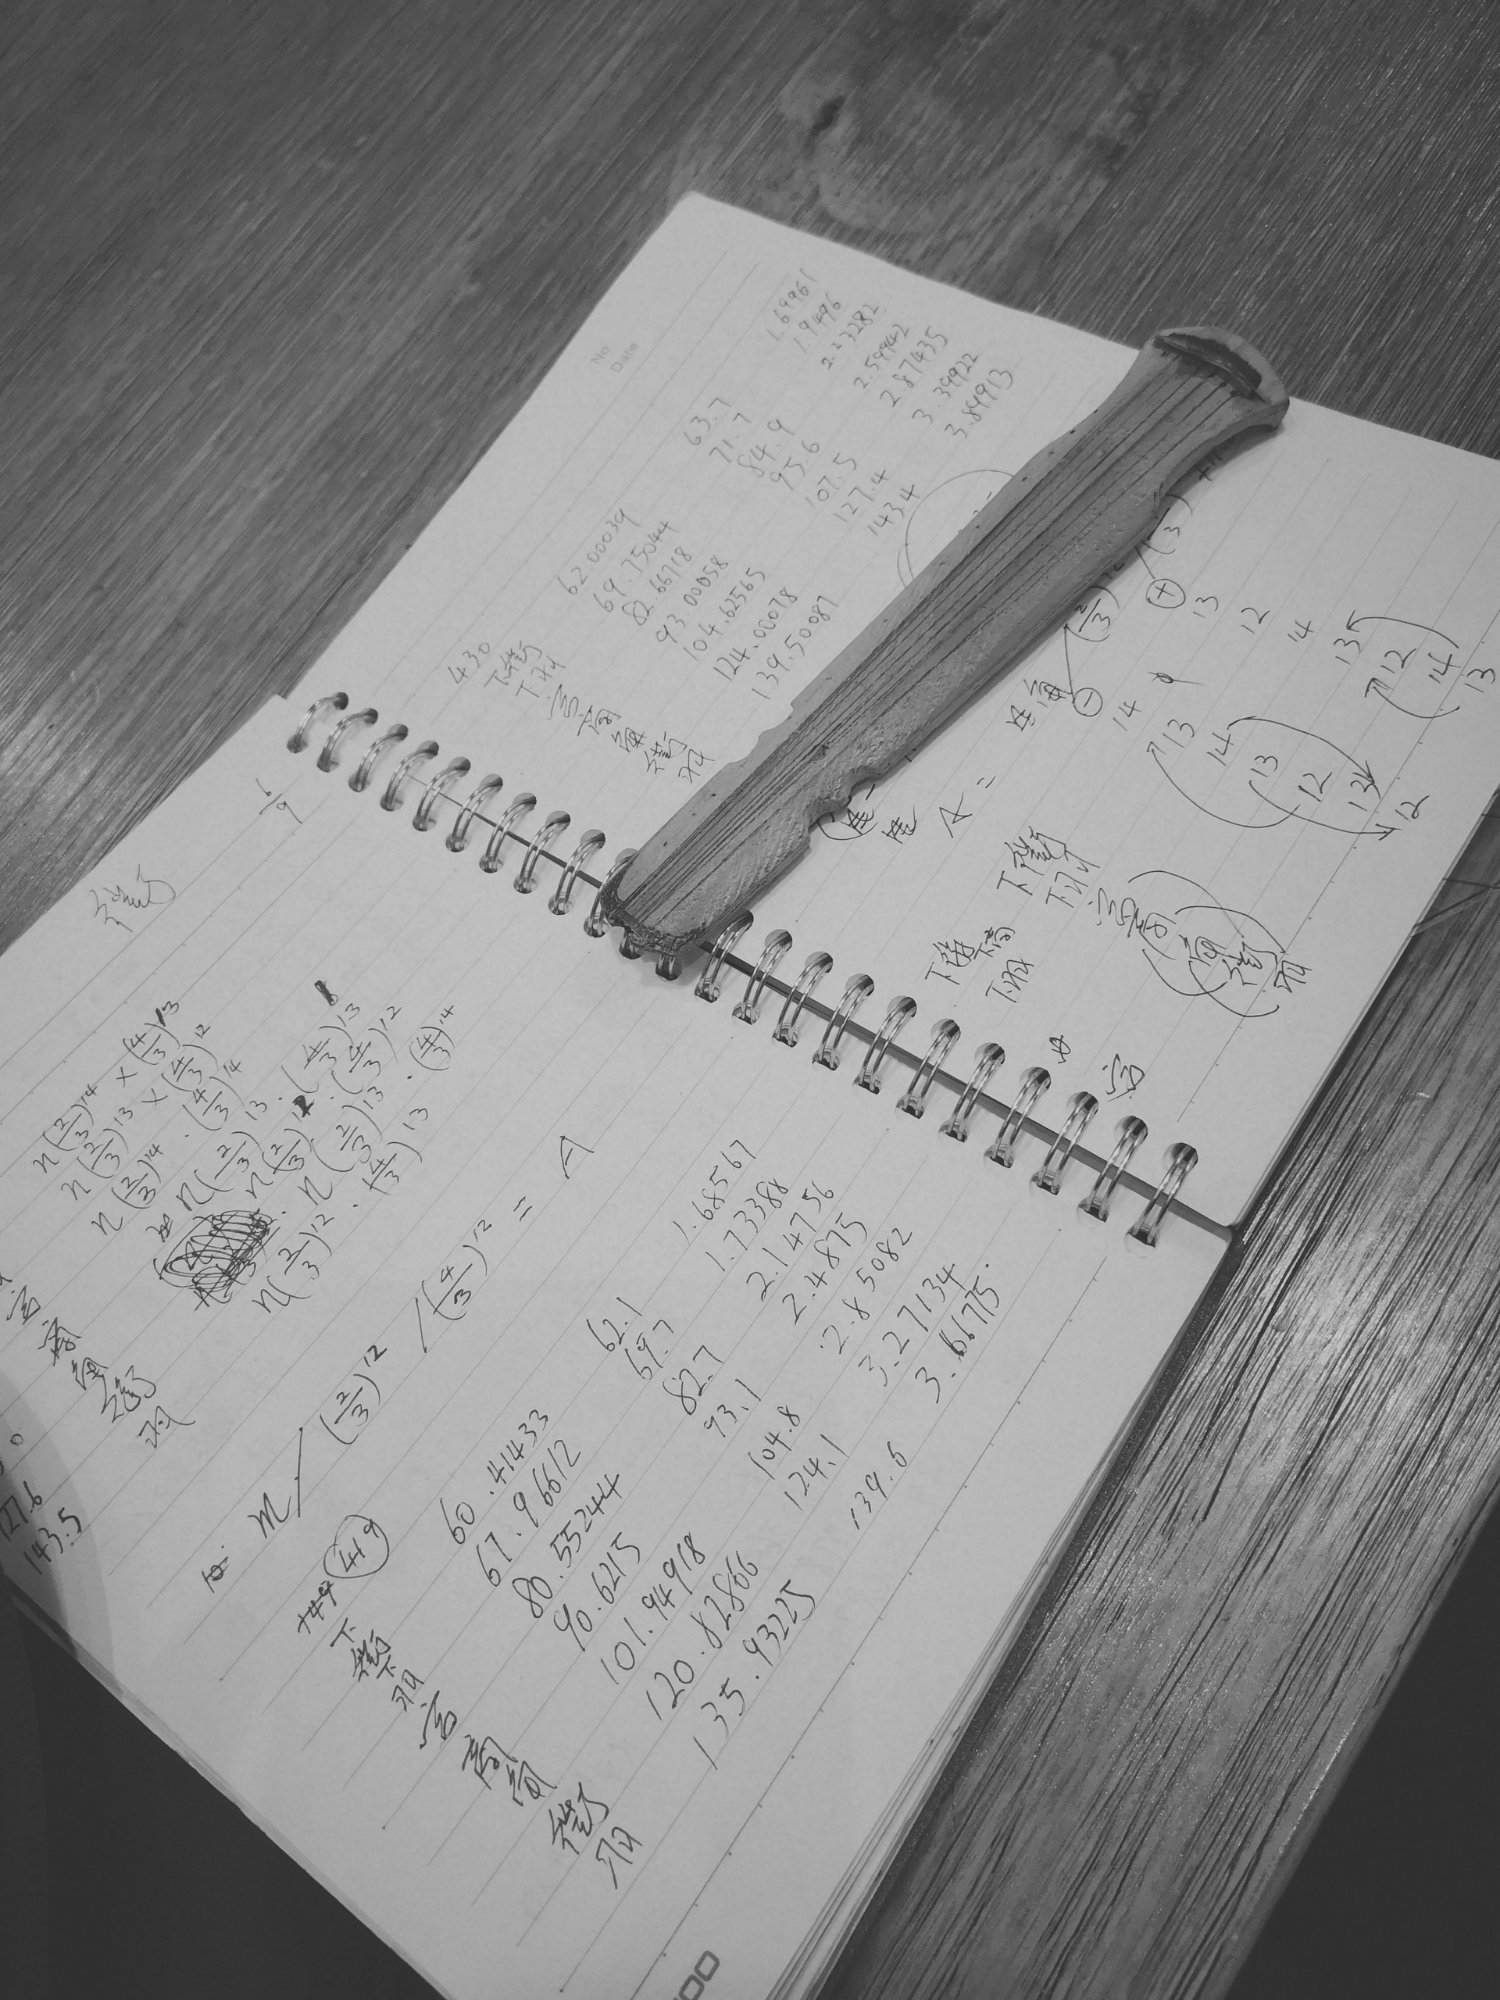 No
Date
1.69961
1.9496
2.23282
2.59942
2.87435
3.39922
3.84913
63.7
71.7
84.9
95.6
107.5
127.4
143.4
62.00039
69.75044
82.66718
93.00058
104.62565
124.00078
139.50087
430
下徵
下羽
宮
商
角
徵
羽
13
12
14
13
12
14
13
14
13
14
13
12
13
12
A =
下徵
下羽
宮
商
角
徵
羽
宮
6/9
徵
n(2/3)^14 × (4/3)^13
n(2/3)^13 × (4/3)^12
n(2/3)^14 · (4/3)^14
n(2/3)^13 · (4/3)^13
n(2/3)^12 · (4/3)^12
n(2/3)^13 · (4/3)^14
n(2/3)^12 · (4/3)^13
宮
商
角
徵
羽
127.6
143.5
m / (2/3)^12 / (4/3)^12 = A
1.68567
1.73388
2.14756
2.4875
2.85082
3.27134
3.66775
62.1
69.7
82.7
93.1
104.8
124.1
139.6
60.41433
67.96612
80.55244
90.6215
101.94918
120.82866
135.93225
419
下徵
下羽
宮
商
角
徵
羽